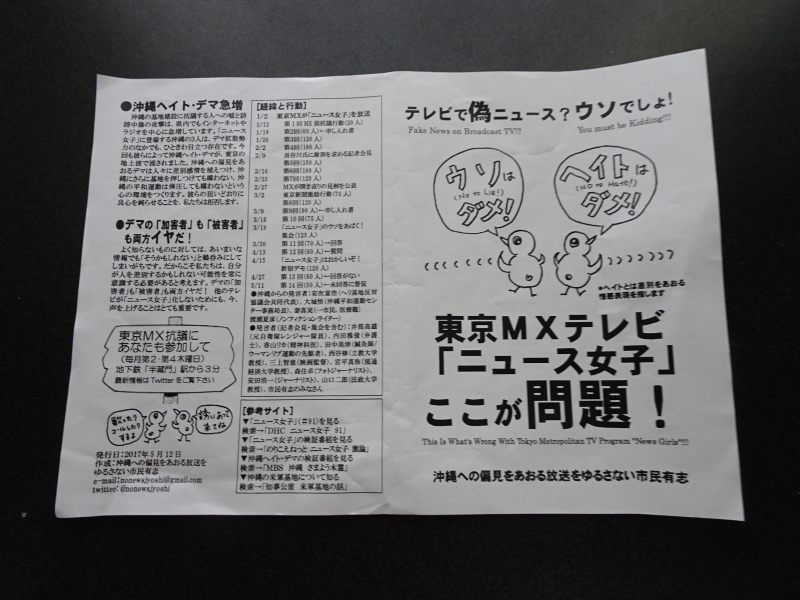 ●沖縄ヘイト・デマ急増
沖縄の基地建設に抗議する人への嘘と誹
謗中傷の攻撃は、県内でもインターネットや
ラジオを中心に急増しています。「ニュース
女子」に登場する沖縄の3人は、デマ拡散勢
力のなかでも、ひときわ目立つ存在です。今
回も彼らによって沖縄ヘイト・デマが、東京の
地上波で流されました。沖縄への偏見をあ
おるデマは人々に差別感情を植えつけ、沖
縄にさらに基地を押しつけても構わない、沖
縄の平和運動は弾圧しても構わないという
心の環境をつくります。彼らの狙いどおりに
良心を鈍らせることを、私たちは拒否します。
●デマの「加害者」も「被害者」
も両方イヤだ!
よく知らないものに対しては、あいまいな
情報でも「そうかもしれない」と鵜呑みにして
しまいがちです。だからこそ私たちは、自分
が人を差別するかもしれない可能性を常に
意識する必要があると考えます。デマの「加
害者」も「被害者」も両方イヤだ! 他のテレ
ビが「ニュース女子」化しないためにも、今、
声を上げることはとても重要です。
東京MX抗議に
あなたも参加して
(毎月第2・第4木曜日)
地下鉄「半蔵門」駅から3分
最新情報はTwitterをご覧下さい
歌ったり
コールしたり
するよ
誘いあって
来てね
発行日:2017年5月12日
作成:沖縄への偏見をあおる放送を
ゆるさない市民有志
e-mail:nonewsjyoshi@gmail.com
twitter: @nonewsjyoshi
[経緯と行動]
1/2 東京MXが「ニュース女子」を放送
1/12 第1回MX前抗議行動(20人)
1/19 第2回(60人)←申し入れ書
1/26 第3回(120人)
2/2 第4回(180人)
2/9 長谷川氏に謝罪を求める記者会見
第5回(150人)
2/16 第6回(160人)
2/23 第7回(120人)
2/27 MXが開き直りの見解を公表
3/2 東京新聞激励行動(70人)
第8回(120人)
3/9 第9回(90人)←申し入れ書
3/16 第10回(75人)
3/19 「ニュース女子」のウソをあばく!
集会(125人)
3/30 第11回(70人)←回答
4/13 第12回(60人)←質問
4/15 「ニュース女子」はおかしいぞ!
新宿デモ(120人)
4/27 第13回(60人)←回答がない
5/11 第14回(50人)←未回答に督促
●沖縄からの発言者:安次富浩(ヘリ基地反対
協議会共同代表)、大城悟(沖縄平和運動セン
ター事務局長)、泰真実(一市民、医療職)
渡瀬夏彦(ノンフィクションライター)
●発言者(記者会見・集会を含む):井筒高雄
(元自衛隊レンジャー隊員)、内田雅俊(弁護
士)、香山リカ(精神科医)、田中美津(鍼灸師/
ウーマンリブ運動の先駆者)、西谷修(立教大学
教授)、三上智恵(映画監督)、宮平真弥(流通
経済大学教授)、森住卓(フォトジャーナリスト)、
安田浩一(ジャーナリスト)、山口二郎(法政大学
教授)、市民有志のみなさん
[参考サイト]
▼「ニュース女子」(#91)を見る
検索→「DHC ニュース女子 91」
▼「ニュース女子」の検証番組を見る
検索→「のりこえねっと ニュース女子 激論」
▼沖縄ヘイト・デマの検証番組を見る
検索→「MBS 沖縄 さまよう木霊」
▼沖縄の米軍基地について知る
検索→「知事公室 米軍基地の話」
テレビで偽ニュース?ウソでしょ!
Fake News on Broadcast TV!? You must be Kidding!!!!
ウソは
(No to Lie!)
ダメ!
ヘイトは
(No to Hate!)
ダメ!
*ヘイトとは差別をあおる
憎悪表現を指します
東京MXテレビ
「ニュース女子」
ここが問題!
This Is What's Wrong With Tokyo Metropolitan TV Program "News Girls"!!!!
沖縄への偏見をあおる放送をゆるさない市民有志